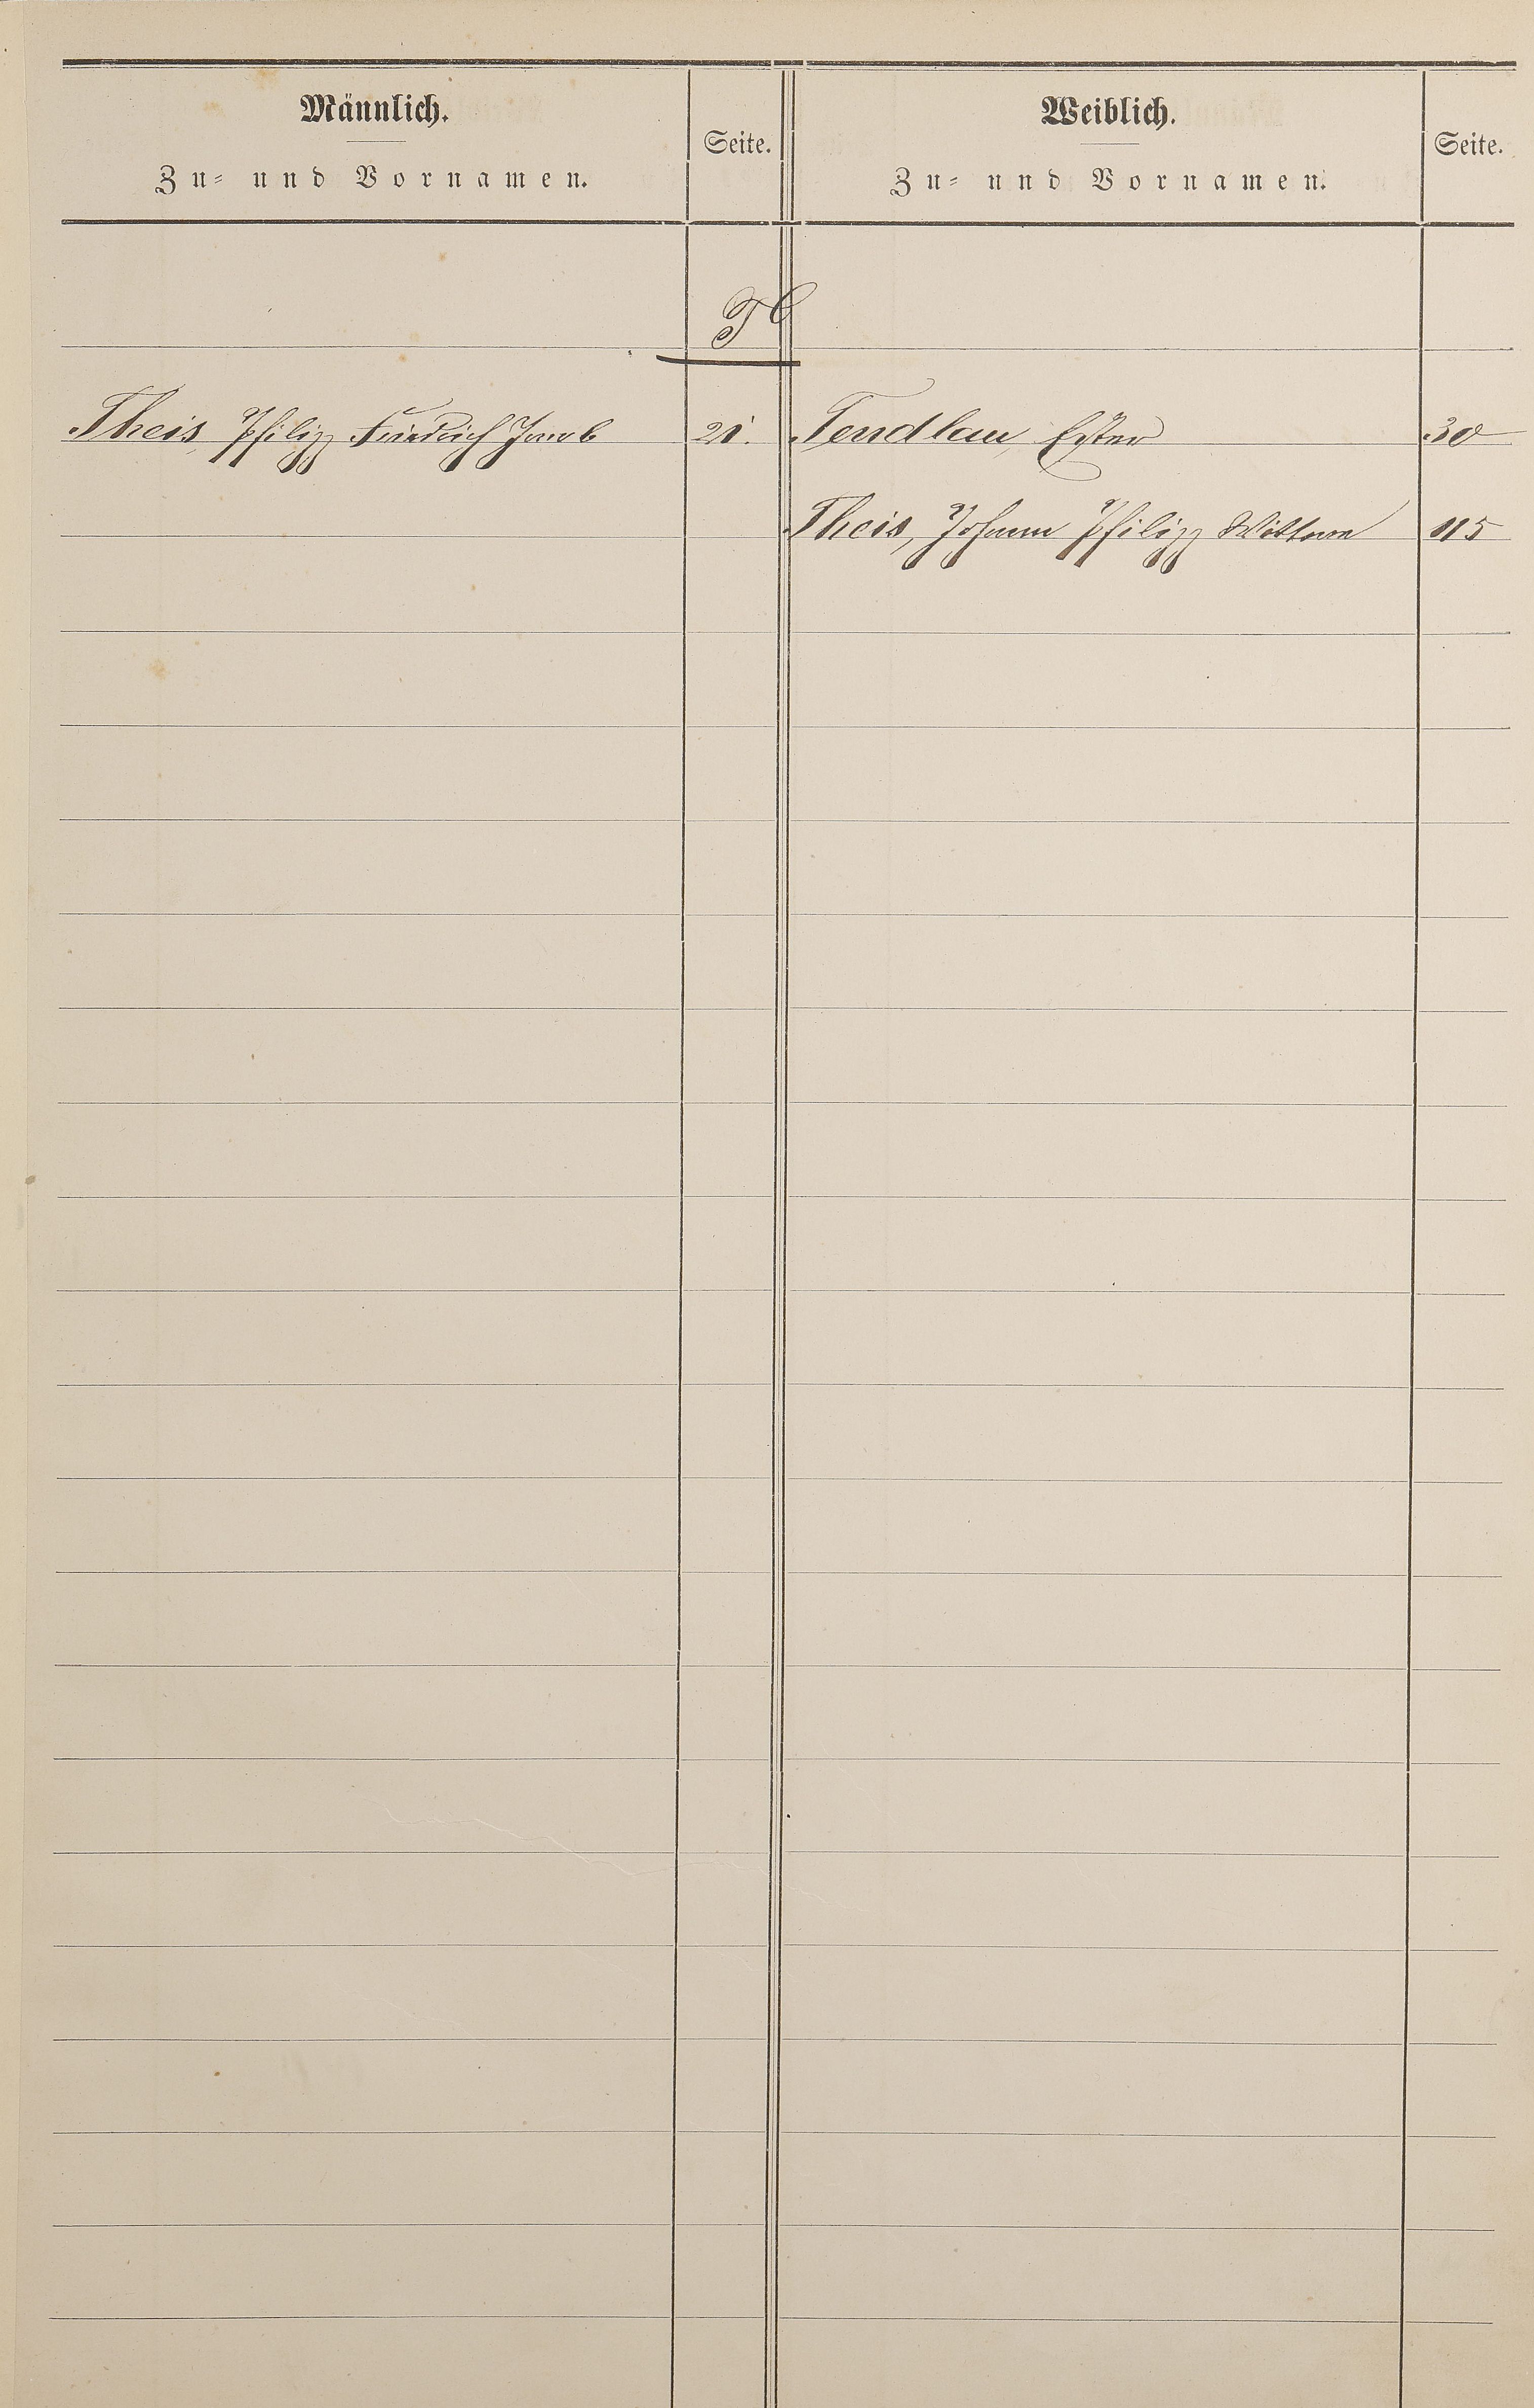 Männlich.
Zu- und Vornamen.
Seite.
Weiblich.
Zu- und Vornamen.
Seite.
T
Theis, Philipp Friedrich Jacob 21.
Tendlau, Ester 30
Theis, Johann Philipp Wittwe 115